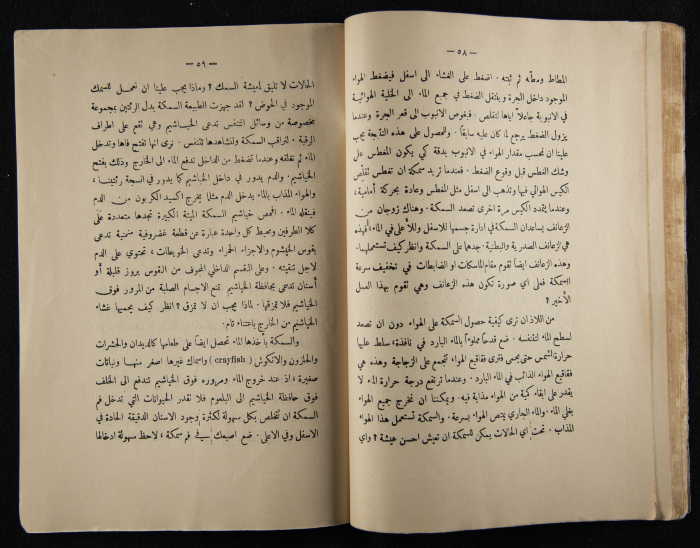 — ٥٨ —
المطاط ومطّه ثم ثبته . اضغط على الغشاء الى اسفل فيضغط الهواء
الموجود داخل الجرة وينتقل الضغط في جميع الماء الى الخلية الهوائية
في الانبوبة جاعلاً اياها تتقلص . فيغوص الانبوب الى قعر الجرة وعندما
يزول الضغط يرجع لما كان عليه سابقاً . والحصول على هذه النتيجة يجب
علينا ان نحسب مقدار الهواء في الانبوب بدقة كي يكون المغطس على
وشك الغطس قبل وقوع الضغط . فعندما تريد سمكة ان تغطس تقلّص
الكيس الهوائي فيها وتذهب الى اسفل مثل المغطس وعادة بحركة أمامية ،
وعندما يتمدد الكيس مرة اخرى تصعد السمكة . وهناك زوجان من
الزعانف يساعدان السمكة في ادارة جسمها للاسفل وللأعلى في الماء ألهذه
هي الزعانف الصدرية والبطنية . جدها على السمكة وانظر كيف تستعملها .
وهذه الزعانف ايضاً تقوم مقام الماسكات او الضابطات في تخفيف سرعة
السمكة فعلى اي صورة تكون هذه الزعانف وهي تقوم بهذا العمل
الأخير ؟
من اللاذ ان ترى كيفية حصول السمكة على الهواء دون ان تصعد
لسطح الماء لتتنفسه . ضع قدحاً مملوءاً بالماء البارد في نافذة ؛ سلط عليها
حرارة الشمس حتى يحمى فترى فقاقيع الهواء تتجمع على الزجاجة وهذه هي
فقاقيع الهواء الذائب في الماء البارد . وعندما ترتفع درجة حرارة الماء لا
يقدر على ابقاء كية من الهواء مذابة فيه . ويمكننا ان نخرج جميع الهواء
بغلي الماء . والماء الجاري يمتص الهواء بسرعة . والسمكة تستعمل هذا الهواء
المذاب . تحت اي الحالات يمكن للسمكة ان تعيش احسن عيشة ؟ واي
— ٥٩ —
الحالات لا تليق لمعيشة السمك ؟ وماذا يجب علينا ان نعمل للسمك
الموجود في الحوض ؟ لقد جهزت الطبيعة السمكة بدل الرئتين بمجموعة
مخصوصة من وسائل التنفس تدعى الخياشيم وهي تقع على اطراف
الرقبة . لنراقب السمكة ولنشاهدها تتنفس . نرى انها تفتح فاها وتدخل
الماء ثم تغلقه وعندما تضغط من الداخل تدفع الماء الى الخارج وذلك بفتح
الخياشيم . والدم يدور في داخل الخياشيم كما يدور في انسجة رئتين ،
والهواء المذاب بالماء يدخل الدم مثلما يخرج اكسيد الكربون من الدم
فينقله الماء . افحص خياشيم السمكة الميتة الكبيرة تجدها متعددة على
كلا الطرفين ومحيط كل واحدة عبارة عن قطعة غضروفية منحنية تدعى
بقوس الخيشوم والاجزاء الحمراء وتدعى الخويطات ، تحتوي على الدم
لاجل تنقيته . وعلى القسم الداخلي المجوف من القوس بروز قليلة أو
أسنان تدعى بحافظة الخياشيم تمنع الاجسام الصلبة من المرور فوق
الخياشيم فلا تمزقها . لماذا يجب ان لا تمزق ؟ انظر كيف يحميها غشاء
الخياشيم من الخارج باعتناء تام .
والسمكة بأخذها الماء تحصل ايضاً على طعامها كالديدان والحشرات
والحلزون والانكوش ( crayfish ) واسماك غيرها اصغر منها ونباتات
صغيرة ؛ اذ عند خروج الماء ومروره فوق الخياشيم تندفع الى الخلف
فوق حافظة الخياشيم الى البلعوم فلا تقدر الحيوانات التي تدخل فم
السمكة ان تتخلص بكل سهولة لكثرة وجود الاسنان الدقيقة الحادة في
الاسفل وفي الاعلى . ضع اصبعك في فم سمكة ، لاحظ سهولة ادخالها